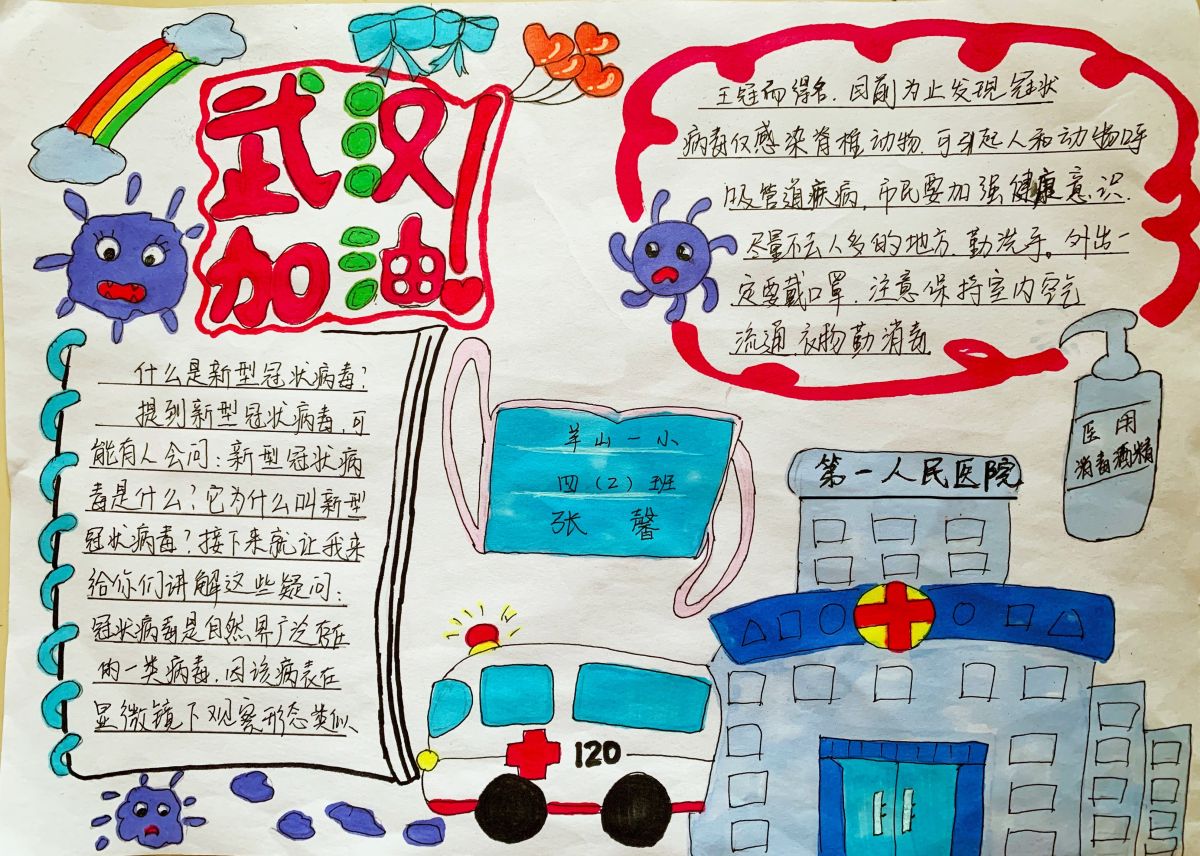 武汉
加油!
什么是新型冠状病毒?
提到新型冠状病毒,可
能有人会问:新型冠状病
毒是什么?它为什么叫新型
冠状病毒?接下来就让我来
给你们讲解这些疑问:
冠状病毒是自然界广泛存在
的一类病毒,因该病表在
显微镜下观察形态类似、
王冠而得名.目前为止发现冠状
病毒仅感染脊椎动物.可引起人和动物呼
吸管道疾病,市民要加强健康意识.
尽量不去人多的地方.勤洗手。外出一
定要戴口罩.注意保持室内空气
流通.衣物勤消毒
羊山一小
四(2)班
张 馨
医用
消毒酒精
第一人民医院
120